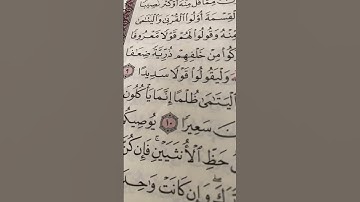 مِمَّا قَلَّ مِنْهُ أَوْ كَثُرَ نَصِيبًا
ٱلْقِسْمَةَ أُو۟لُوا۟ ٱلْقُرْبَىٰ وَٱلْيَتَٰمَىٰ
مِّنْهُ وَقُولُوا۟ لَهُمْ قَوْلًا مَّعْرُوفًا
تَرَكُوا۟ مِنْ خَلْفِهِمْ ذُرِّيَّةً ضِعَٰفًا
وَلْيَقُولُوا۟ قَوْلًا سَدِيدًا ٩
ٱلْيَتَٰمَىٰ ظُلْمًا إِنَّمَا يَأْكُلُونَ
سَعِيرًا ١٠ يُوصِيكُ
حَظِّ ٱلْأُنثَيَيْنِ ۚ فَإِن كُنَّ
وَإِن كَانَتْ وَٰحِ